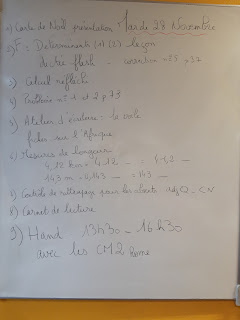 1) Carte de Noël présentation Mardi 28 Novembre
2) F : Déterminants (1) (2) leçon
dictée flash - correction 25 p 37
3) Calcul réfléchi
4) Problème n° 1 et 2 p 73
5) Atelier d'écriture : la
fiches sur l'Afrique
6) Mesures de longueur
4,12 km = 4 12 = 4 1 2
14,3 m = 0,143 = 143
7) Contrôle de rattrapage pour les absents CN
8) Carnet de lecture
9) Hand 13h30 - 16h30
avec les CM2